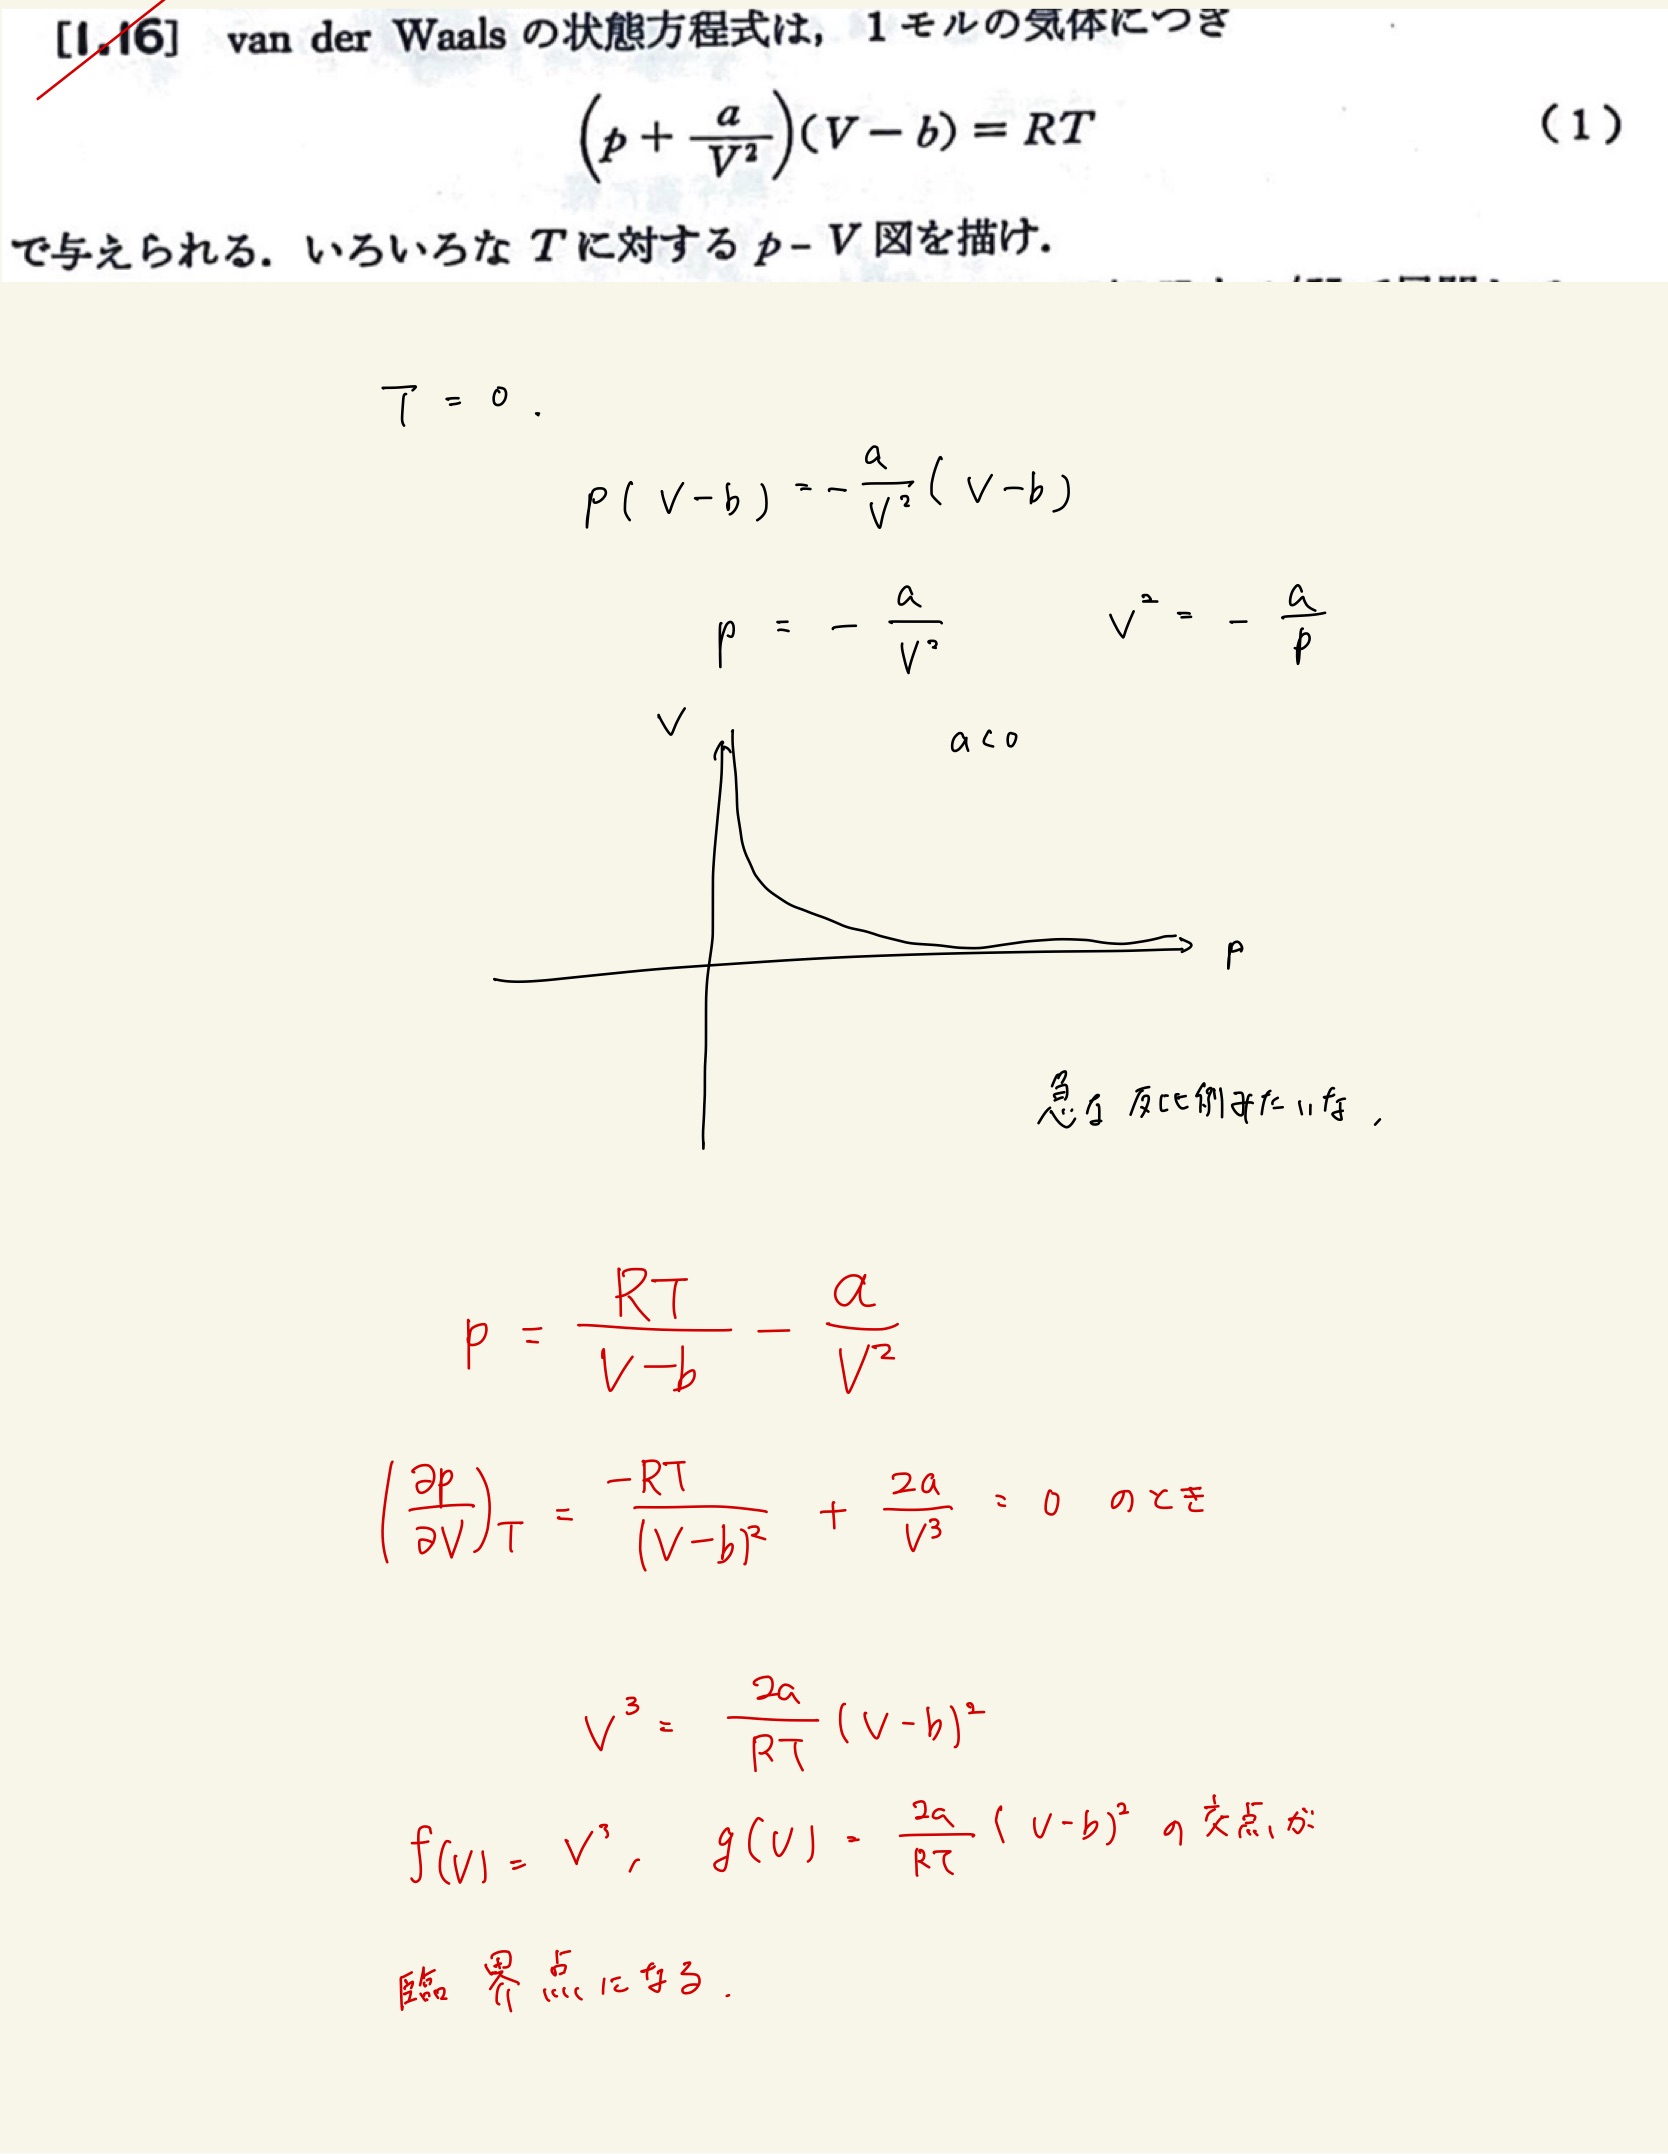 [1.16] van der Waals の状態方程式は, 1モルの気体につき
(p + a/V²)(V − b) = RT (1)
で与えられる. いろいろな T に対する p – V 図を描け.
T = 0 .
p ( V − b ) = − a/V² ( V − b )
p = − a/V² V² = − a/p
V a < 0
p
急な 反比例みたいな ,
p = RT/(V−b) − a/V²
(∂p/∂V)T = −RT/(V−b)² + 2a/V³ = 0 のとき
V³ = 2a/RT (V−b)²
f(V) = V³, g(V) = 2a/RT (V−b)² の交点が
臨界点になる.